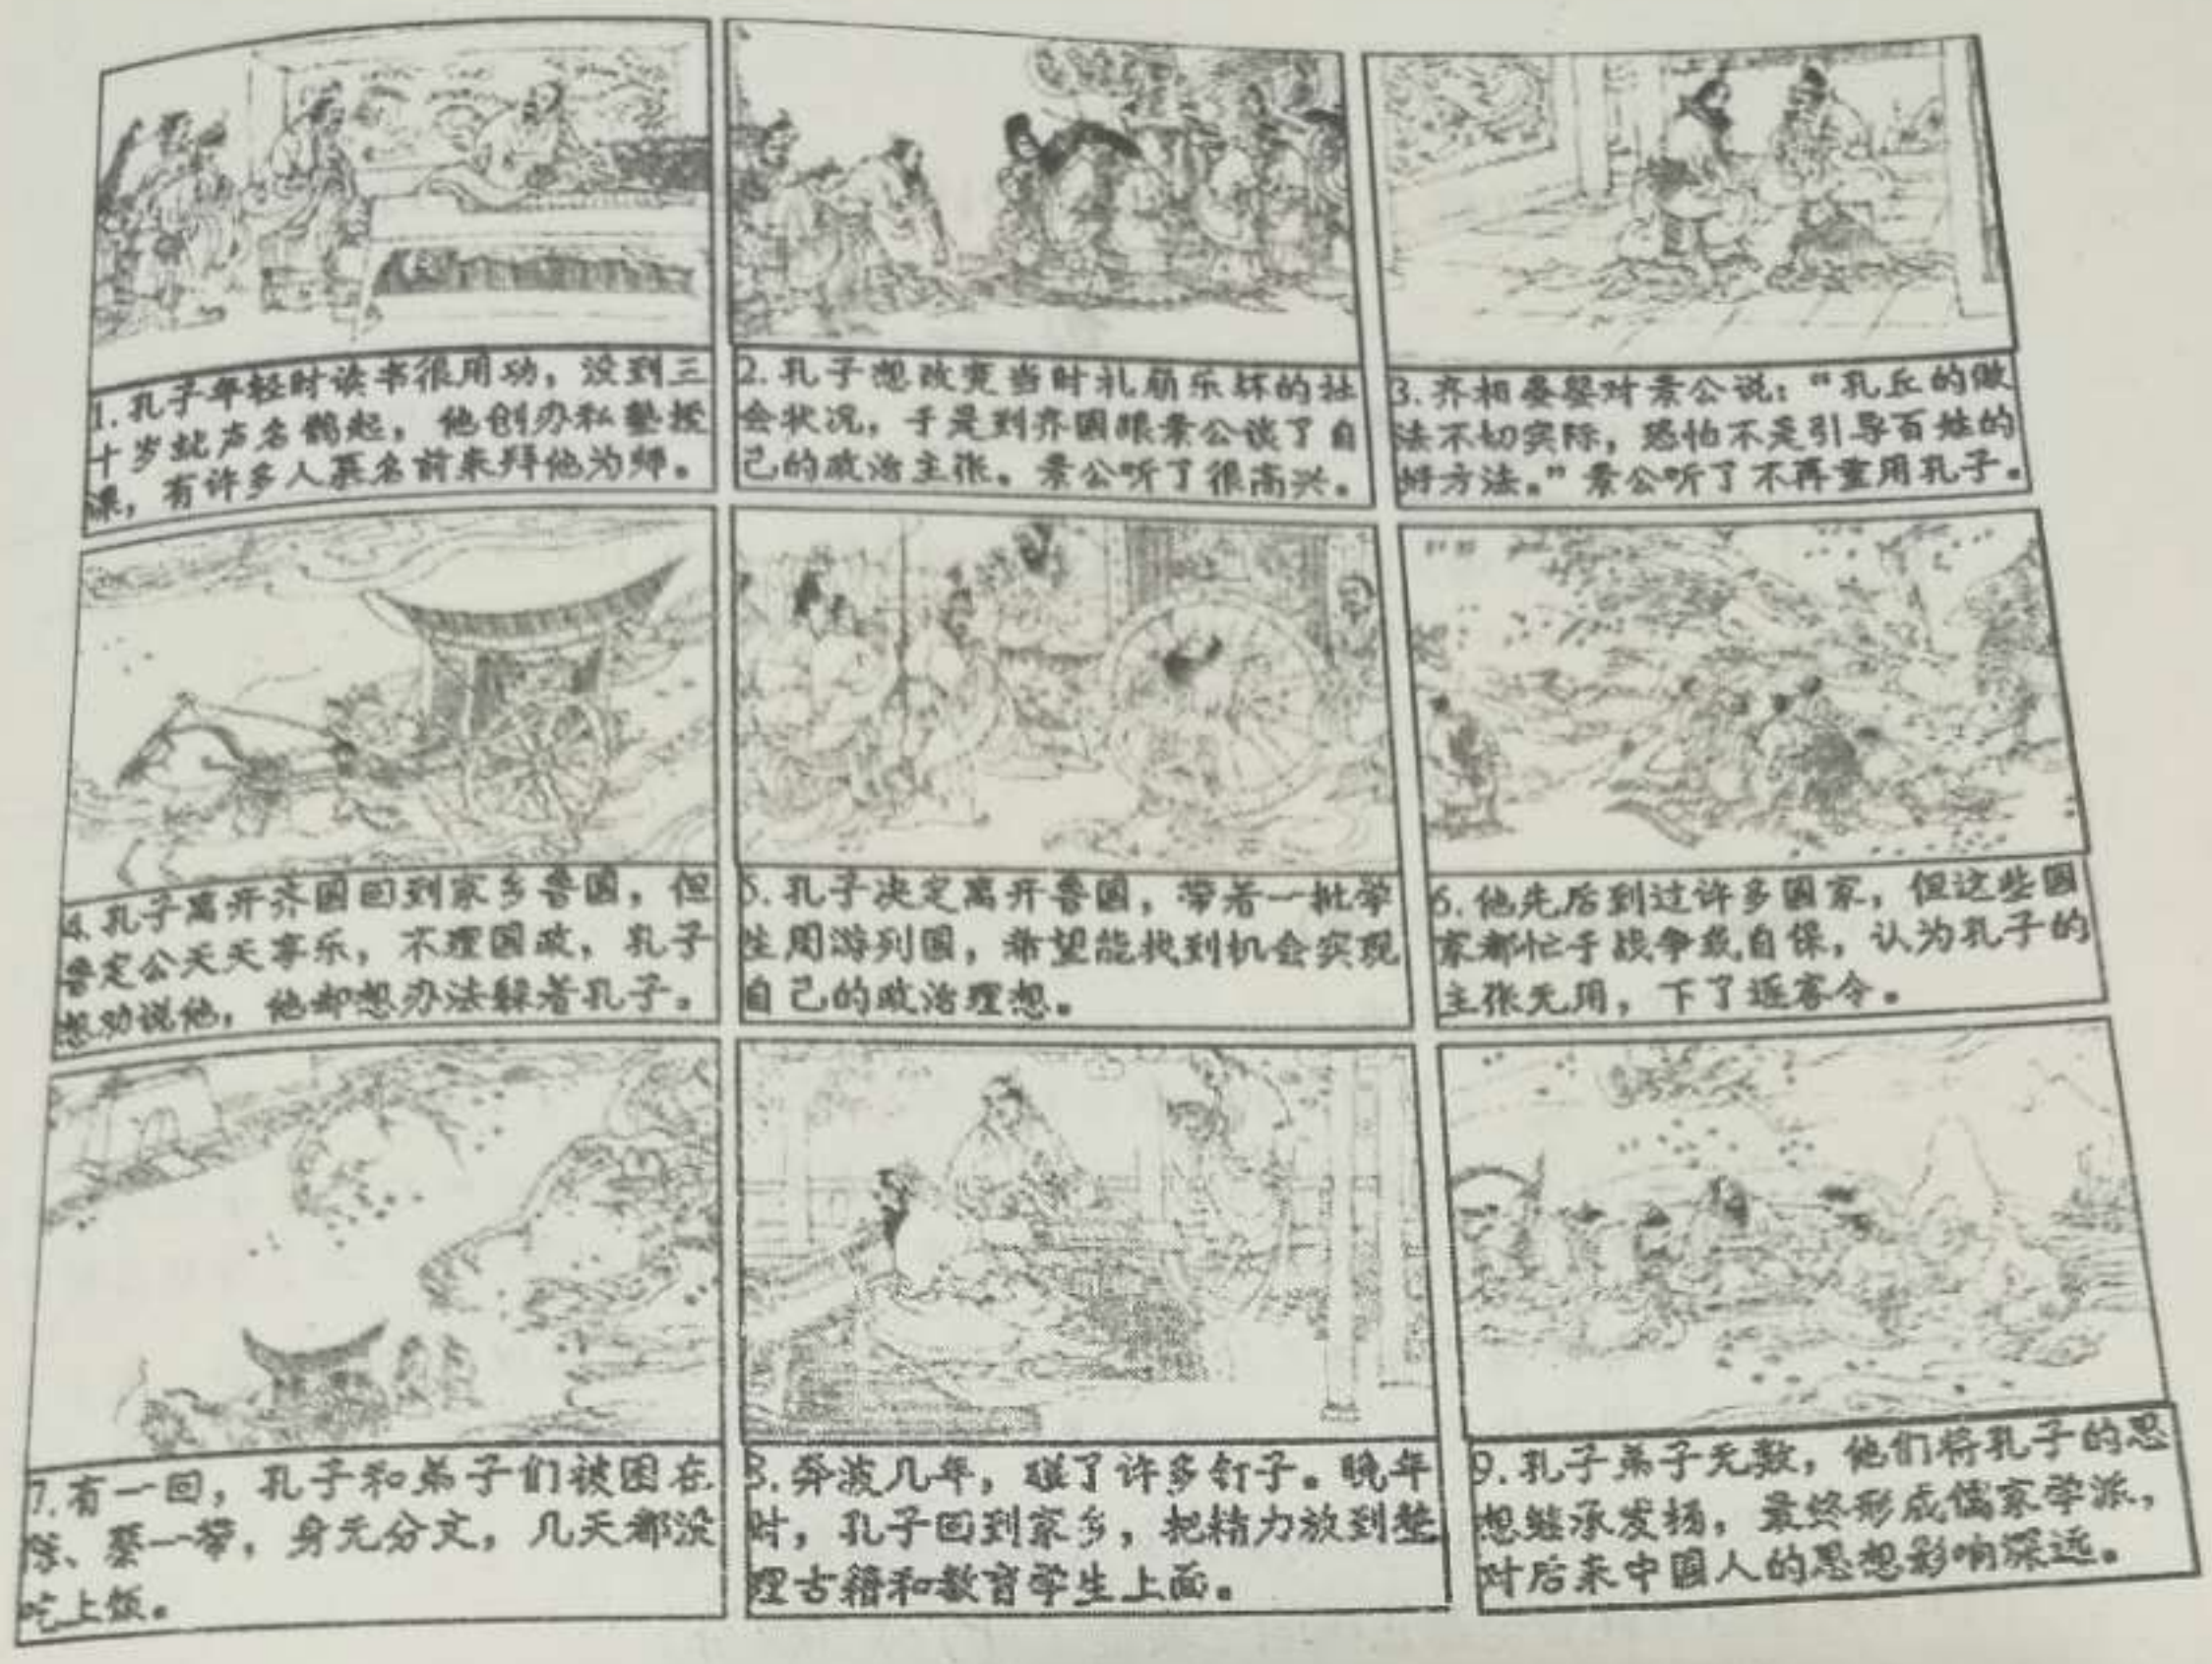 1.孔子年轻时读书很用功，没到三
十岁就声名鹊起，他创办私塾授
课，有许多人慕名前来拜他为师。
2.孔子想改变当时礼崩乐坏的社
会状况，于是到齐国跟景公谈了自
己的政治主张。景公听了很高兴。
3.齐相晏婴对景公说：“孔丘的做
法不切实际，恐怕不是引导百姓的
好方法。”景公听了不再重用孔子。
4.孔子离开齐国回到家乡鲁国，但
鲁定公天天享乐，不理国政，孔子
想劝说他，他却想办法躲着孔子。
5.孔子决定离开鲁国，带着一批学
生周游列国，希望能找到机会实现
自己的政治理想。
6.他先后到过许多国家，但这些国
家都忙于战争或自保，认为孔子的
主张无用，下了逐客令。
7.有一回，孔子和弟子们被困在
陈、蔡一带，身无分文，几天都没
吃上饭。
8.奔波几年，碰了许多钉子。晚年
时，孔子回到家乡，把精力放到整
理古籍和教育学生上面。
9.孔子弟子无数，他们将孔子的思
想继承发扬，最终形成儒家学派，
对后来中国人的思想影响深远。